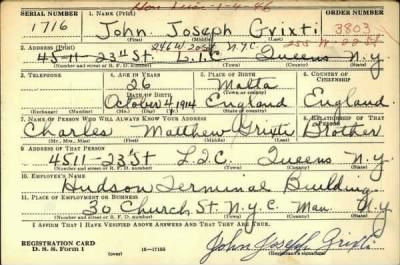 SERIAL NUMBER 1. NAME (Print) ORDER NUMBER
1716 John Joseph Grixti 3803
(First) (Middle) (Last)
2. ADDRESS (Print) 246 W. 20 St N.Y.C. 255 W. 22 St
45-11-23rd St L.I.C. Queens N.Y.
(Number and street or R. F. D. number) (Town) (County) (State)
3. TELEPHONE 4. AGE IN YEARS 5. PLACE OF BIRTH 6. COUNTRY OF CITIZENSHIP
26 Malta
DATE OF BIRTH
October 4 1914 England England
(Exchange) (Number) (Mo.) (Day) (Yr.) (State or country)
7. NAME OF PERSON WHO WILL ALWAYS KNOW YOUR ADDRESS 8. RELATIONSHIP OF THAT PERSON
Charles Matthew Grixti Brother
(Mr., Mrs., Miss) (First) (Middle) (Last)
9. ADDRESS OF THAT PERSON
4511-23 St L.I.C. Queens N.Y.
(Number and street or R. F. D. number) (Town) (County) (State)
10. EMPLOYER'S NAME
Hudson Terminal Building
11. PLACE OF EMPLOYMENT OR BUSINESS
30 Church St. N.Y.C. Man N.Y.
(Number and street or R. F. D. number) (Town) (County) (State)
I AFFIRM THAT I HAVE VERIFIED ABOVE ANSWERS AND THAT THEY ARE TRUE.
REGISTRATION CARD
D. S. S. Form 1 (over) 16-17105 John Joseph Grixti
(Registrant's signature)